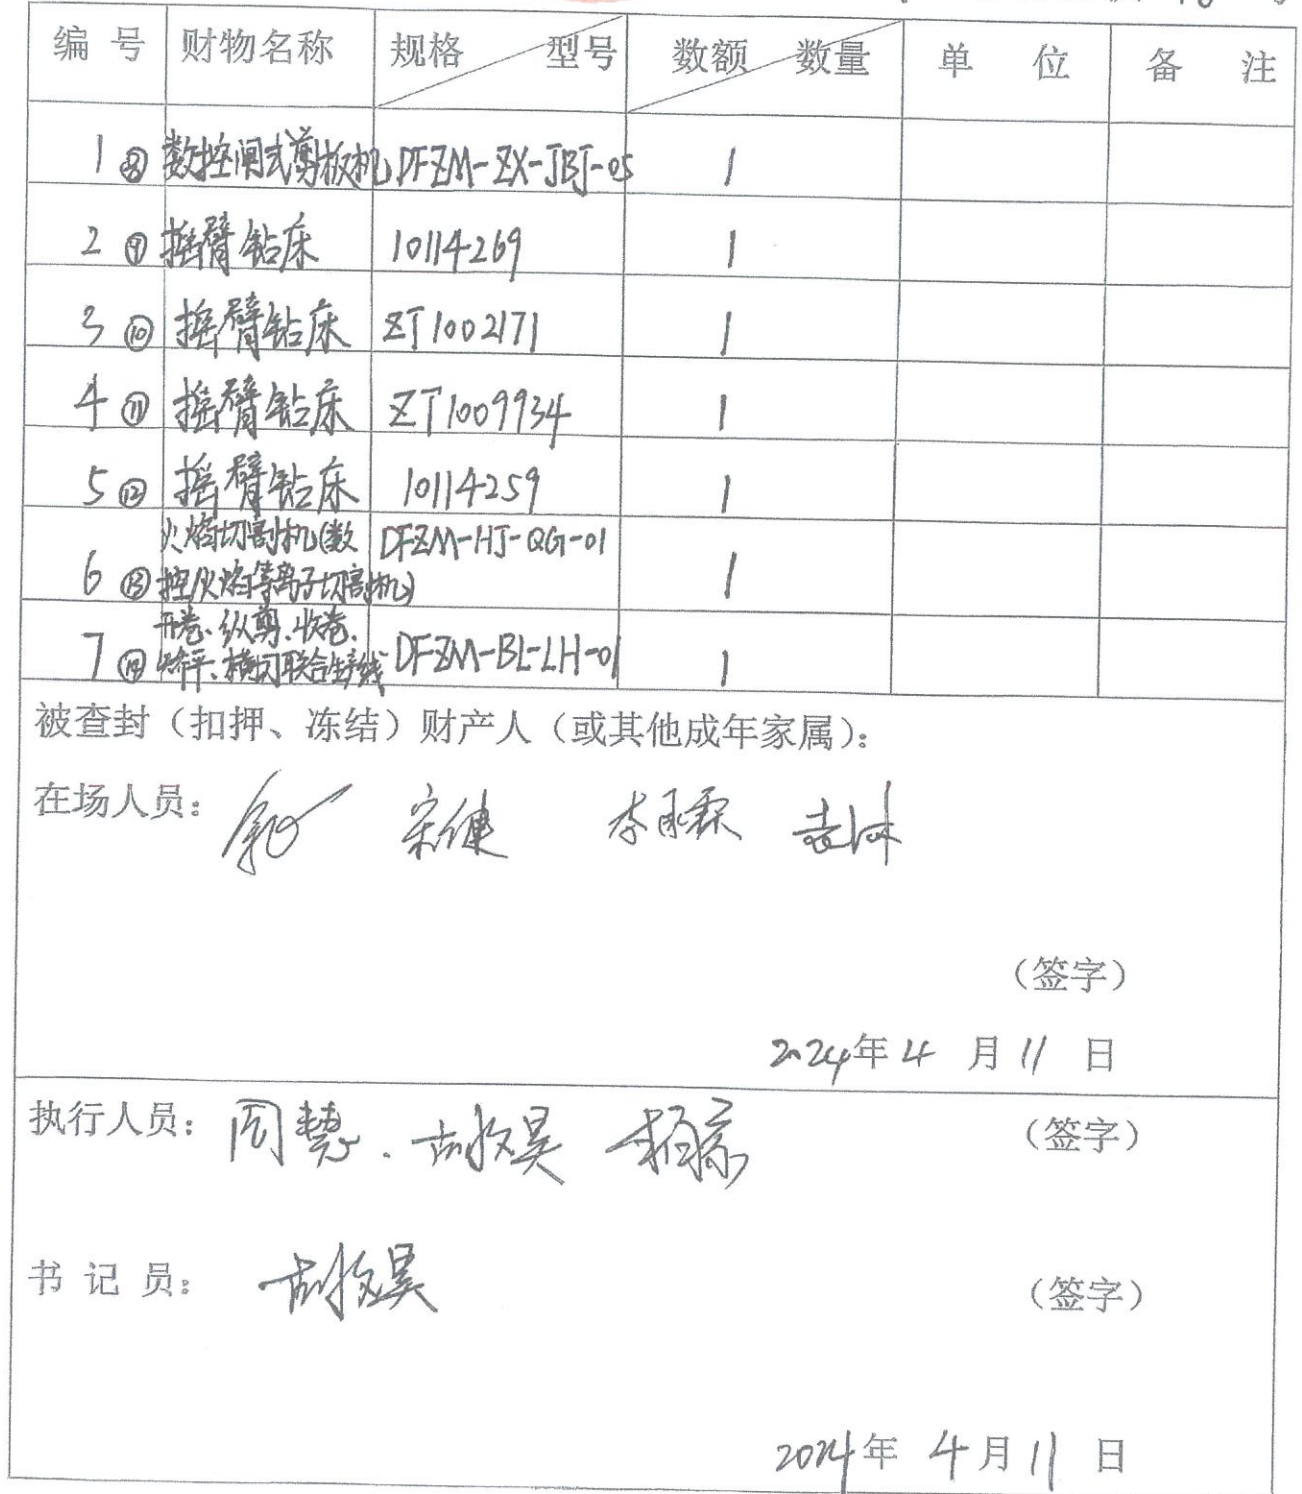 编 号 财物名称 规格 型号 数额 数量 单 位 备 注
1 ⑧ 数控闸式剪板机 DFZM-ZX-JBJ-05 1
2 ⑨ 摇臂钻床 10114269 1
3 ⑩ 摇臂钻床 ZT1002171 1
4 ⑪ 摇臂钻床 ZT1009934 1
5 ⑫ 摇臂钻床 10114259 1
火焰切割机(数 DFZM-HJ-QG-01
6 ⑬ 控火焰等离子切割机) 1
开卷、纵剪、收卷、
7 ⑭ 矫平、横切联合生产线 DFZM-BL-LH-01 1
被查封（扣押、冻结）财产人（或其他成年家属）：
在场人员： 宋健
（签字）
2024年 4 月 11 日
执行人员： 周慧、 （签字）
书 记 员： （签字）
2024年 4月 11 日